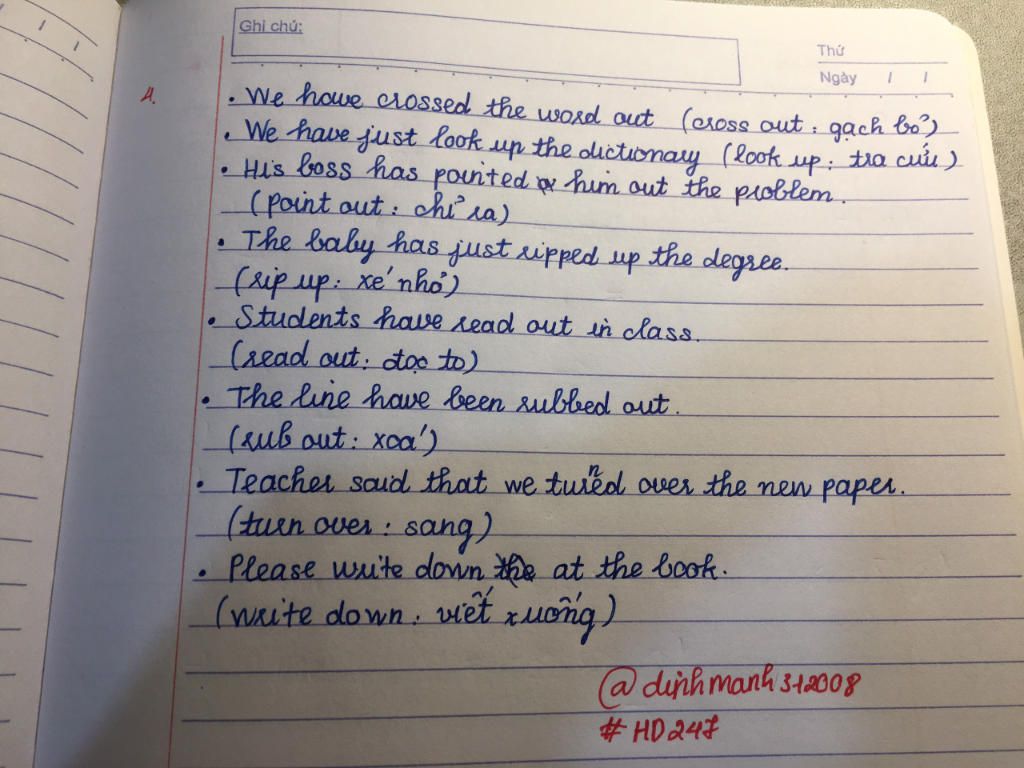 Ghi chú:
Thứ
Ngày / /
4.
. We have crossed the word out (cross out : gạch bỏ)
. We have just look up the dictionary (look up : tra cứu)
. His boss has pointed him out the problem.
(point out : chỉ ra)
. The baby has just ripped up the degree.
(rip up : xé nhỏ)
. Students have read out in class.
(read out : đọc to)
. The line have been rubbed out.
(rub out : xoá)
. Teacher said that we turned over the new paper.
(turn over : sang)
. Please write down at the book.
(write down : viết xuống)
@dinhmanh312008
# HD247